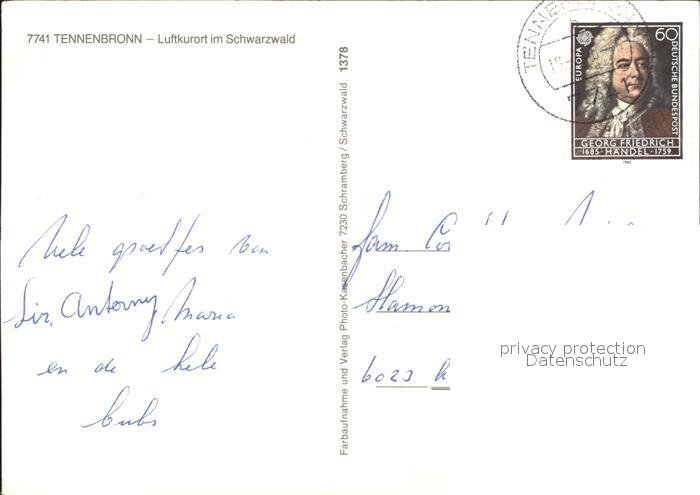 7741 TENNENBRONN – Luftkurort im Schwarzwald
TENNENBRONN
EUROPA
60
DEUTSCHE BUNDESPOST
GEORG FRIEDRICH
1685 · HÄNDEL · 1759
Farbaufnahme und Verlag Photo-Kasenbacher 7230 Schramberg / Schwarzwald 1378
Hele groetjes van
Sir, Antonny, Maria
en de hele
Fam. Co
6023
privacy protection
Datenschutz